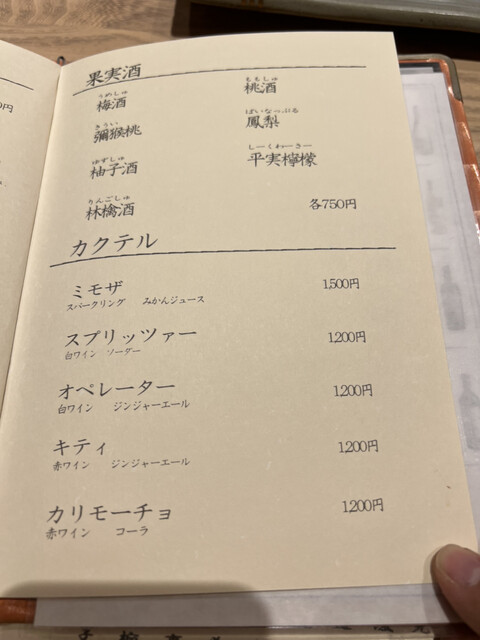 果実酒
うめしゅ
梅酒
ももしゅ
桃酒
きうい
彌猴桃
ぱいなっぷる
鳳梨
ゆずしゅ
柚子酒
しーくわーさー
平実檸檬
りんごしゅ
林檎酒
各750円
カクテル
ミモザ 1,500円
スパークリング みかんジュース
スプリッツァー 1,200円
白ワイン ソーダー
オペレーター 1,200円
白ワイン ジンジャーエール
キティ 1,200円
赤ワイン ジンジャーエール
カリモーチョ 1,200円
赤ワイン コーラ